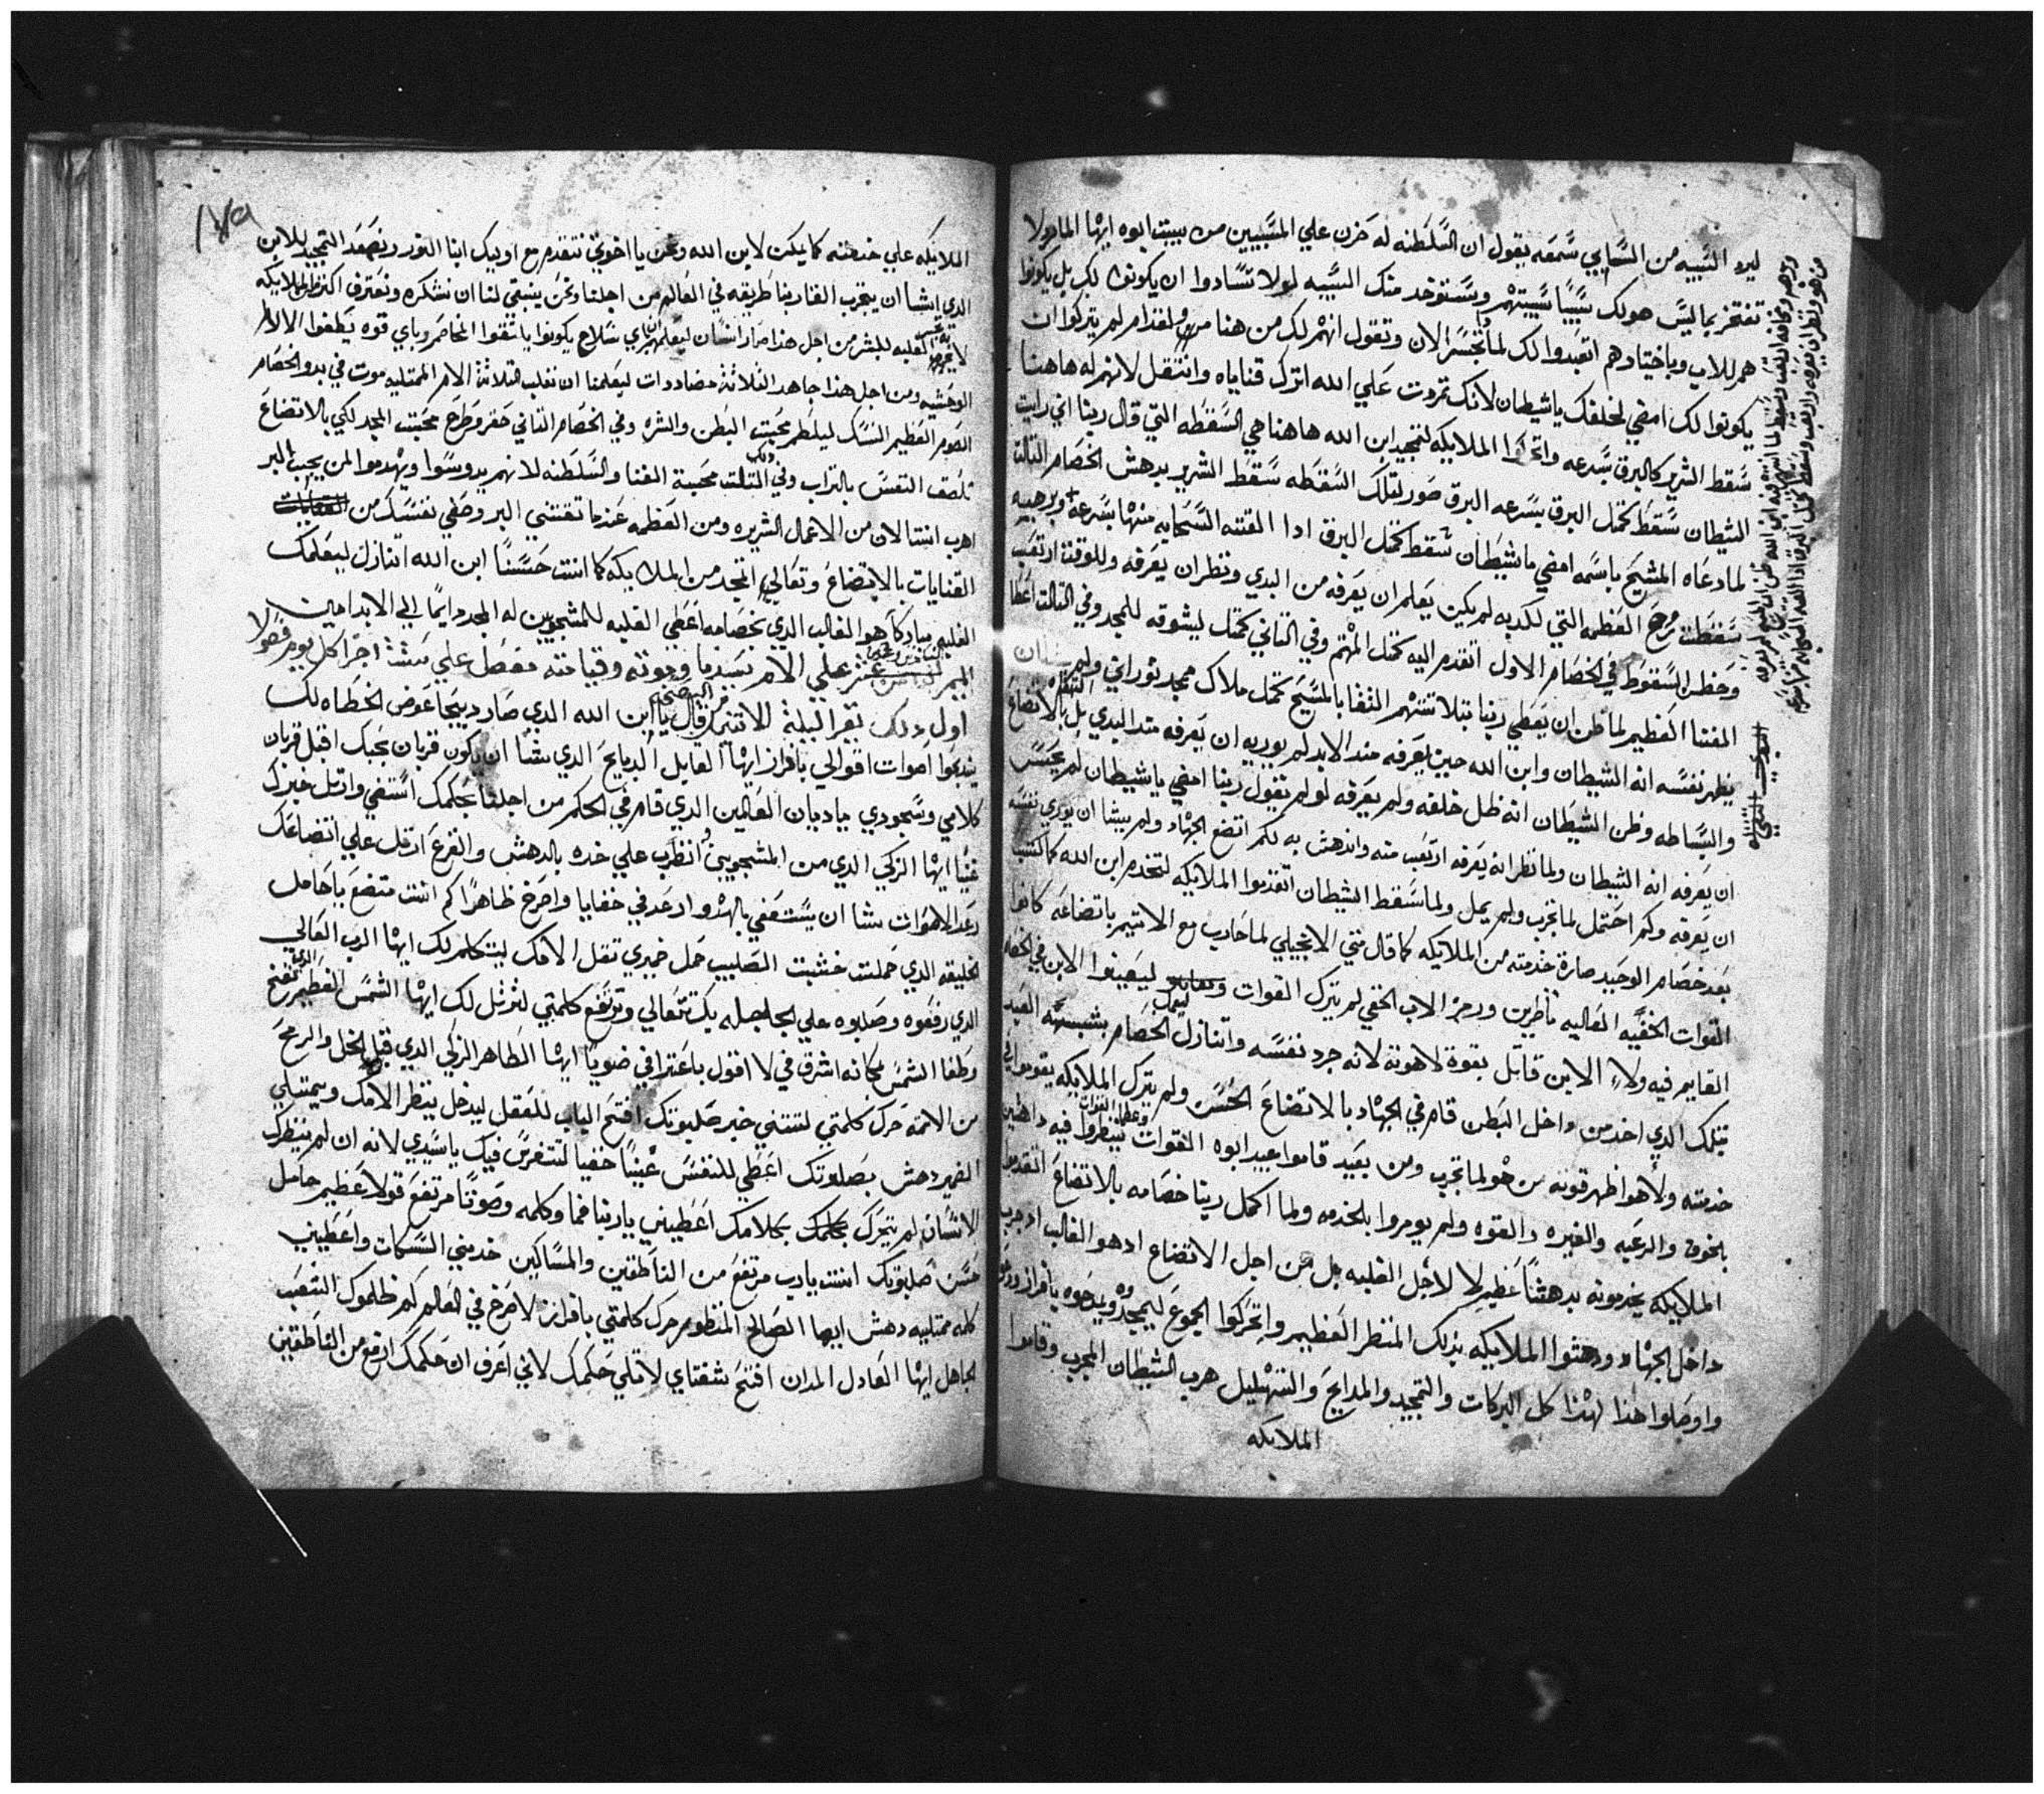 ليرد السبيه من السابي سمعه يقول ان السلطنه له حزن علي المسبيين من بيت ابوه ايها المارد لا
تفتخر بما ليس هو لك سبيًا سبيتهم وستوخد منك السبيه لولا تسادوا ان يكونوا لك بل يكونوا
هم للاب وباختيادهم اتعبدوا لك لما تجسر الان وتقول انهم لك من هنا مر ولقدام لم يتركوا ان
يكونوا لك امضي لخلفك ياشيطان لانك تمردت علي الله اترك قناياه وانتقل لانهم له هاهنا
سقط الشرير كالبرق بسرعه واتحركوا الملايكه لتمجيد ابن الله هاهنا هي السقطه التي قال ربنا اني رايت
الشيطان سقط كمثل البرق بسرعه البرق صور لتلك السقطه سقط الشرير بدهش الخصام التالت
لما دعاه المسيح باسمه امضي ياشيطان سقط كمثل البرق ادا القته السحابه منها بسرعه وبرهبه
سقطت العظمه التي لكدبه لم يكن يعلم ان يعرفه من البدي ونظر ان يعرفه وللوقت ارتعب
وحظر السقوط في الخصام الاول اتقدم اليه كمثل المهتم وفي التاني كمثل ليشوقه للمجد وفي التالت اعطا
المقتنا العظيم لما ظن ان يعطي ربنا بتلاتتهم التقا بالمسيح كمثل ملاك ممجد نوراني ولم
يظهر نفسه انه الشيطان وابن الله حين يعرفه مند الابد لم يوريه ان يعرفه مند البدي بل بالاتضاع
والبساطه وظن الشيطان انه ظل خلقه ولم يعرفه لو لم تقول ربنا امضي ياشيطان لم يحسن
ان يعرفه انه الشيطان ولما نظر انه يعرفه ارتعب منه واندهش به لكم اتضع الجهاد ولم يشا ان يوري نفسه
ان يعرفه وكم احتمل لما تجرب ولم يمل ولما سقط الشيطان اتقدموا الملايكه لتخدم ابن الله كما كتب
بعد خصام الوحيد صارة خدمته من الملايكه كما قال متي الانجيلي لما حارب مع الاتيم باتضاعه كانوا
القوات الخفيه العاليه ناظرين ورمز الاب الخفي لم يترك القوات ليعينوا الابن في الخفه
القايم فيه ولا الابن قاتل بقوة لاهوته لانه جرد نفسه واتنازل الخصام بشبه العبد
بتلك الدي اخد من داخل البطن قام في الجهاد بالاتضاع الحسن ولم يترك الملايكه يقوموا في
خدمته ولا هو اظهر قوته من هو لما تجرب ومن بعيد قاموا عبيد ابوه القوات ينظروا فيه داهشين
بخوف والرعبه والغيره والقوه ولم يومروا بالخدمه ولما اكمل ربنا خصامه بالاتضاع اتقدموا
الملايكه يخدمونه بدهشًا عظيم لا لاجل الغلبه بل من اجل الاتضاع ادهو الغالب اد جرب
داخل الجهاد ودهشوا الملايكه بدلك المنظر العظيم واتحركوا الجموع ليمجدوه ويمدحوه بافراز
واوصلوا هذا لهذا كل البركات والتمجيد والمدايح والتهليل هرب الشيطان المجرب وقاموا
الملايكه
١٧٩
الملايكه علي خدمته كما يكتب لابن الله ونحن يا اخوتي نتقدم مع اوليك ابنا النور ونصعد التمجيد للابن
الدي ايشا ان يتجرب القا ربنا طريقه في العالم من اجلنا ونحن ينبغي لنا ان نشكره ونعترف اكتر من الملايكه
الغلبه للبشر من اجل هذا صار انسان ليعلمهم باي سلاح يكونوا يلتقوا المخاصم وباي قوه يطفوا الالام
الوحشيه ومن اجل هذا جاهد التلاتة مضاددات ليعلمنا ان نغلب التلاتة الام الممتليه موت في بدو الخصام
الصوم العظيم النسك ليلطم محبت البطن والشره وفي الخصام التاني حقر وطرح محبت المجد لكي بالاتضاع
تلصق النفس بالتراب وفي التالت محبة الغنا والسلطنه لانهم يدوسوا ويهدموا لمن يحب البر
اهرب انت الان من الاعمال الشريره ومن العظمه عندما تقتني البر وصفي نفسك من
القنايات بالاتضاع وتعالي اتمجد من الملايكه كما انت حسنًا ابن الله اتنازل ليعلمك
الغلبه مباركا هو الغالب الدي بخصامه اعطي الغلبه للمسجودين له المجد دايمًا الي الابد امين
الميمر علي الام سيدنا وموته وقيامته مفصل علي ستت اجزا كل يوم فصولا
اول دلك تقرا ليلة الاتنين قال يا ابن الله الدي صار دبيحًا عوض الخطاه لك
يندبحوا اصوات اقوالي بافراز ايها القابل الدبايح الدي شئا ان يكون قربان بحبك اقبل قربان
كلامي وسجودي ياديان العالمين الدي قام في الحكم من اجلنا بحكمك استقي وارتل خبرك
غنيًا ايها الزكي الدي من المسجودين انظرب علي خده بالدهش والفزع ارتل علي اتضاعك
رعد الاصوات شا ان يستعفي بالهدو ارعد في خفايا واصرخ ظاهرًا كم انت متضع يا حامل
الخليقه الدي حملت خشبت الصليب حمل ضميري تقل الامك ليتكلم لك ايها الرب العالي
الدي رفعوه وصلبوه علي الجلجله بك تتعالي وترتفع كلمتي لترتل لك ايها الشمس العظيم
وطفا الشمس مكانه اشرق في لا اقول باعترافي ضويًا ايها الطاهر الزكي الدي قبل الخل والرمح
من الاتمه حرك كلمتي لتنتني خبر صلبوتك افتح الباب للعقل ليدخل ينظر الامك ويمتلي
الضمير دهش بصلبوتك اعطي للنفس عينًا خفيا لتتفرس فيك ياسيدي لانه ان لم ينظرك
الانسان لم يتحرك بكلامك اعطيني ياربنا فما وكلمه وصوتًا مرتفع قولًا عظيم حامل
حسن صلبوتك انت يارب مرتفع من الناطقين والمساكين خديني السكات واعطيني
كلمه ممتليه دهش ايها الصالح المنظوم حرك كلمتي بافراز لاصرخ في العالم كم ظلموك الشعب
الجاهل ايها العادل المدان افتح شفتاي لاتلي حكمك لاني اعرف ان حكمك ارفع من الناطقين